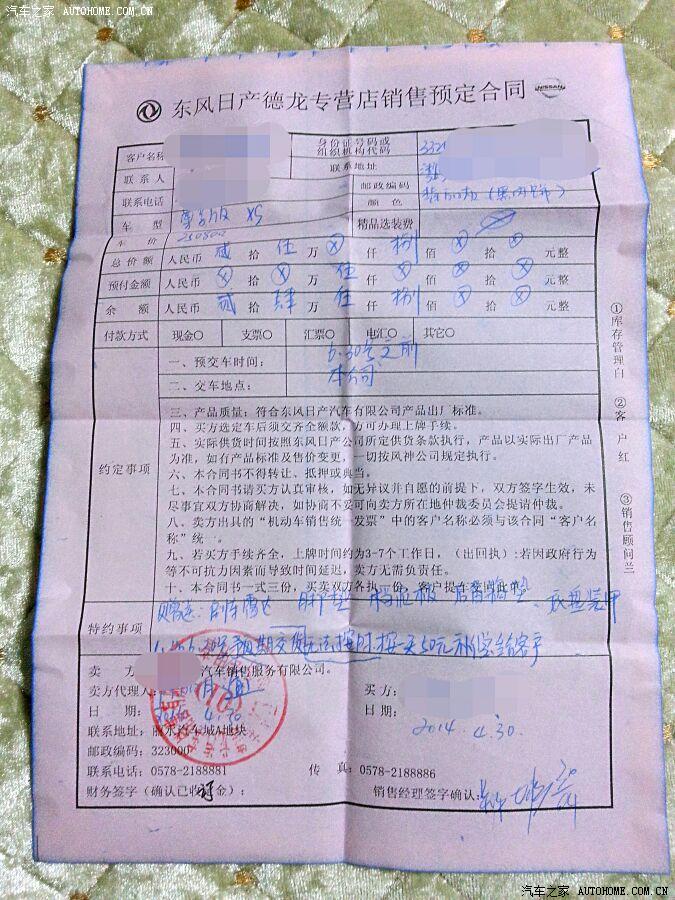 汽车之家 AUTOHOME.COM.CN
东风日产德龙专营店销售预定合同 NISSAN
客户名称 身份证号码或组织机构代码 332
联系人 联系地址
联系电话 邮政编码
颜色
车型 尊享版 XS 精品选装费
车价 250800
总价额 人民币 贰 拾 伍 万 ⊗ 仟 捌 佰 ⊗ 拾 ⊗ 元整
预付金额 人民币 ⊗ 拾 ⊗ 万 伍 仟 ⊗ 佰 ⊗ 拾 ⊗ 元整
余额 人民币 贰 拾 肆 万 伍 仟 捌 佰 ⊗ 拾 ⊗ 元整
付款方式 现金○ 支票○ 汇票○ 电汇○ 其它○
一、预交车时间: 6.30号之前
二、交车地点: 本公司
约定事项
三、产品质量:符合东风日产汽车有限公司产品出厂标准。
四、买方选定车后须交齐全额款,方可办理上牌手续。
五、实际供货时间按照东风日产公司所定供货条款执行,产品以实际出厂产品
为准,如有产品标准及售价变更,一切按风神公司规定执行。
六、本合同书不得转让、抵押或典当。
七、本合同书请买方认真审核,如无异议并自愿的前提下,双方签字生效,未
尽事宜双方协商解决,如协商不妥可向卖方所在地仲裁委员会提请仲裁。
八、卖方出具的“机动车销售统一发票”中的客户名称必须与该合同“客户名
称”统一。
九、若买方手续齐全,上牌时间约为3-7个工作日,(出回执);若因政府行为
等不可抗力因素而导致时间延迟,卖方无需负责任。
十、本合同书一式三份,买卖双方各执一份,客户提车签回此单
特约事项
脚垫 后备箱垫 底盘装甲
按一天50元补偿给客户
卖方 汽车销售服务有限公司。
卖方代理人: 买方:
日期: 4.30 日期: 2014.4.30
联系地址:丽水汽车城A地块
邮政编码:323000
联系电话:0578-2188881 传真:0578-2188886
财务签字(确认已收订金): 销售经理签字确认:
①库存管理白 ②客户红 ③销售顾问兰
汽车之家 AUTOHOME.COM.CN